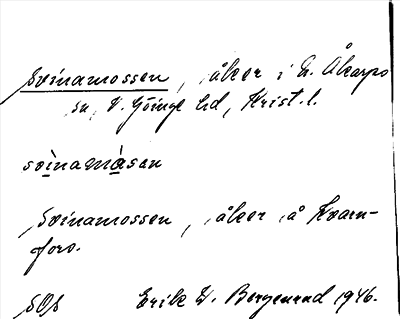 Svinamossen, åker i N. Åkarps
sn, V. Göinge hd, Krist. l.
svìnamåsan
Svinamossen, åker å Kvarn-
fors.
SOs Erik W. Bergenrud 1946.